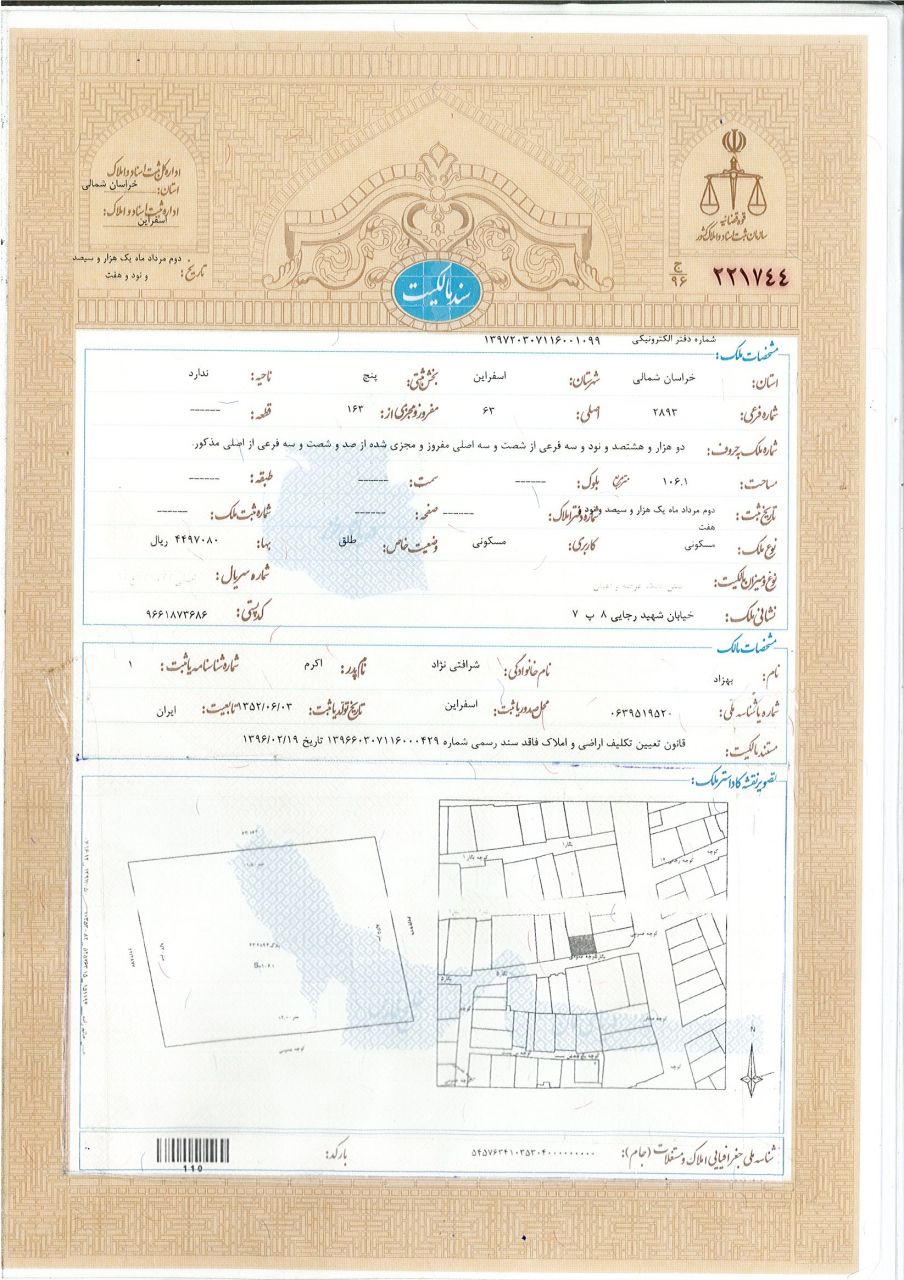 اداره کل ثبت اسناد و املاک
استان: خراسان شمالی
اداره ثبت اسناد و املاک:
اسفراین
تاریخ: دوم مرداد ماه یک هزار و سیصد
و نود و هفت
قوه قضائیه
سازمان ثبت اسناد و املاک کشور
ج
۹۶
۲۲۱۷۴۴
سند مالکیت
شماره دفتر الکترونیکی ۱۳۹۷۲۰۳۰۷۱۱۶۰۰۱۰۹۹
مشخصات ملک:
استان: خراسان شمالی شهرستان: اسفراین بخش ثبتی: پنج ناحیه: ندارد
شماره فرعی: ۲۸۹۳ اصلی: ۶۳ مفروز و مجزی از: ۱۶۳ قطعه: ------
شماره ملک به حروف: دو هزار و هشتصد و نود و سه فرعی از شصت و سه اصلی مفروز و مجزی شده از صد و شصت و سه فرعی از اصلی مذکور.
مساحت: ۱۰۶.۱ مترمربع بلوک: ------ سمت: ------ طبقه: ------
تاریخ ثبت: دوم مرداد ماه یک هزار و سیصد و نود و شماره دفتر املاک: ------ صفحه: ------ شماره ثبت ملک: ------
هفت
نوع ملک: مسکونی کاربری: مسکونی وضعیت خاص: طلق بها: ۴۴۹۷۰۸۰ ریال
نوع و میزان مالکیت: شماره سریال:
نشانی ملک: خیابان شهید رجایی ۸ پ ۷ کد پستی: ۹۶۶۱۸۷۳۶۸۶
مشخصات مالک
نام: بهزاد نام خانوادگی: شرافتی نژاد نام پدر: اکرم شماره شناسنامه یا ثبت: ۱
شماره یا شناسه ملی: ۰۶۳۹۵۱۹۵۲۰ محل صدور یا ثبت: اسفراین تاریخ تولد یا ثبت: ۱۳۵۲/۰۶/۰۳ تابعیت: ایران
مستند مالکیت: قانون تعیین تکلیف اراضی و املاک فاقد سند رسمی شماره ۱۳۹۶۶۰۳۰۷۱۱۶۰۰۰۴۲۹ تاریخ ۱۳۹۶/۰۲/۱۹
تصویر نقشه کاداستر ملک:
کوچه نگار ۱
نگار ۱
کوچه
کوچه عمومی
نگار ۵
کوچه
کوچه
کوچه عمومی
N
شناسه ملی جغرافیایی املاک و مستغلات (جام): ۵۴۵۷۶۳۴۱۰۳۵۳۰۴۰۰۰۰۰۰۰۰۰۰
بارکد:
110